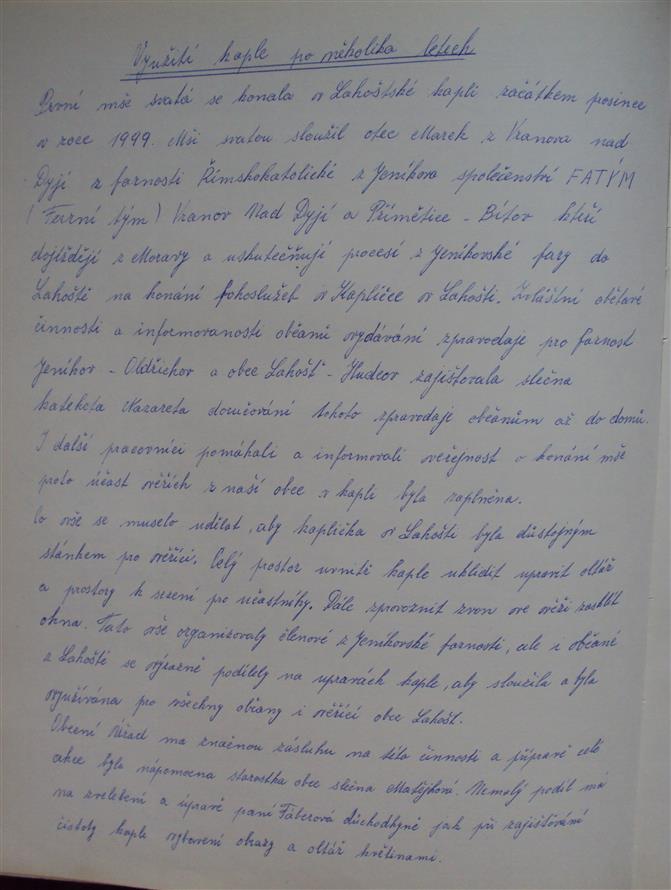 Využití kaple po několika letech
První mše svatá se konala v Lahoštské kapli začátkem prosince
v roce 1999. Mši svatou sloužil otec Marek z Vranova nad
Dyjí z farnosti Římskokatolické z Jeníkova společenství FATÝM
(Farní tým) Vranov Nad Dyjí a Přímětice - Bítov kteří
dojíždějí z Moravy a uskutečňují procesí z Jeníkovské fary do
Lahoště na konání bohoslužeb v Kapličce v Lahošti. Zvláštní obětavé
činnosti a informovanosti občanů vydávání zpravodaje pro farnost
Jeníkov - Oldřichov a obec Lahošť - Hudcov zajišťovala slečna
kateketa Nazareta doručování tohoto zpravodaje občanům až do domů.
I další pracovníci pomáhali a informovali veřejnost o konání mše
proto účast věřích z naší obce v kapli byla zaplněna.
Co vše se muselo udělat, aby kaplička v Lahošti byla důstojným
stánkem pro věřící. Celý prostor uvnitř kaple uklidit upravit oltář
a prostory k sezení pro účastníky. Dále zprovoznit zvon ve věži zasklít
okna. Toto vše organizovaly členové z Jeníkovské farnosti, ale i občané
z Lahoště se výrazně podílely na upravách kaple, aby sloužila a byla
využívána pro všechny občany i věřící obce Lahošť.
Obecní Úřad ma značnou zásluhu na této činnosti a přípravě celé
akce byla nápomocna starostka obce slečna Matějková. Nemalý podíl má
na zvelebení a úpravě paní Fáberová důchodkyně jak při zajišťování
čistoty kaple vybavení obrazy a oltář květinami.